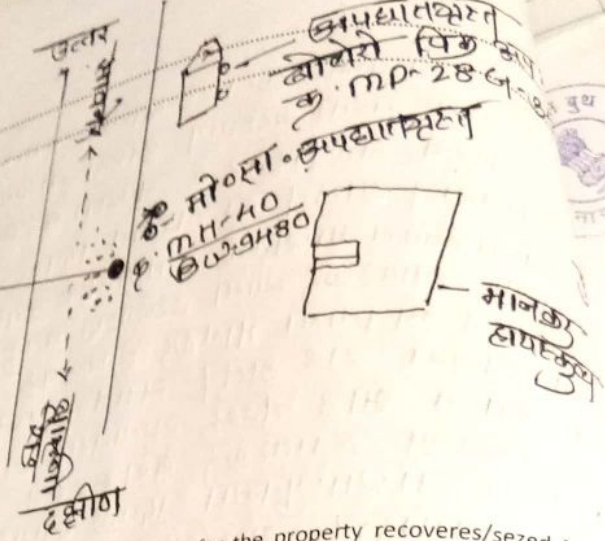 उत्तर
अपघातग्रस्त
बोलेरो पिक अप
क्र. MP-28-G-
मो०सा० अपघातग्रस्त
क्र. MH-40
9480
मानका
हायस्कुल
दक्षीण
the property recoveres/sezed